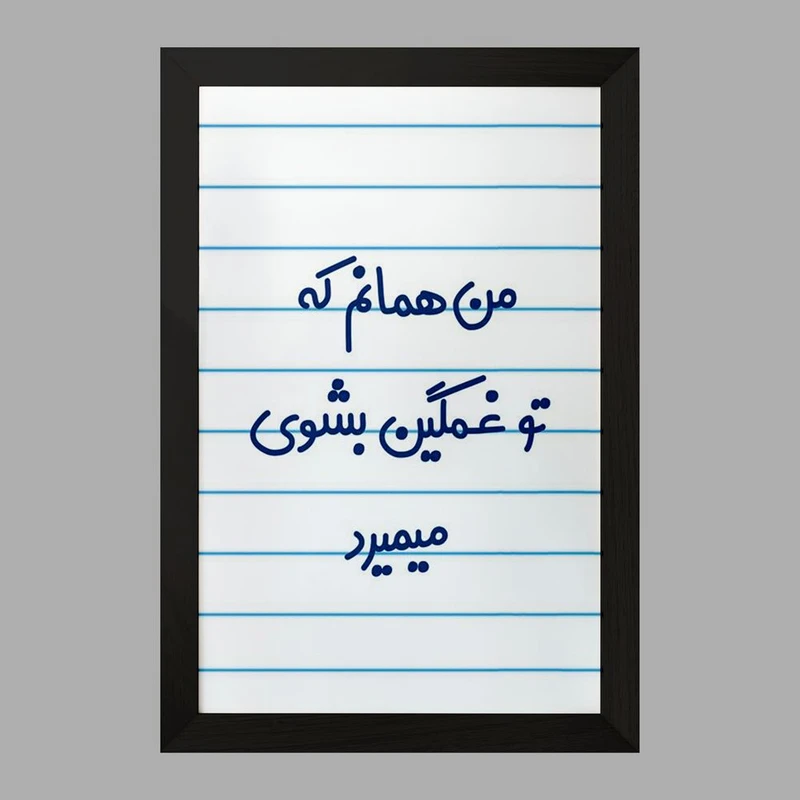 من همانم که
تو غمگین بشوی
میمیرد